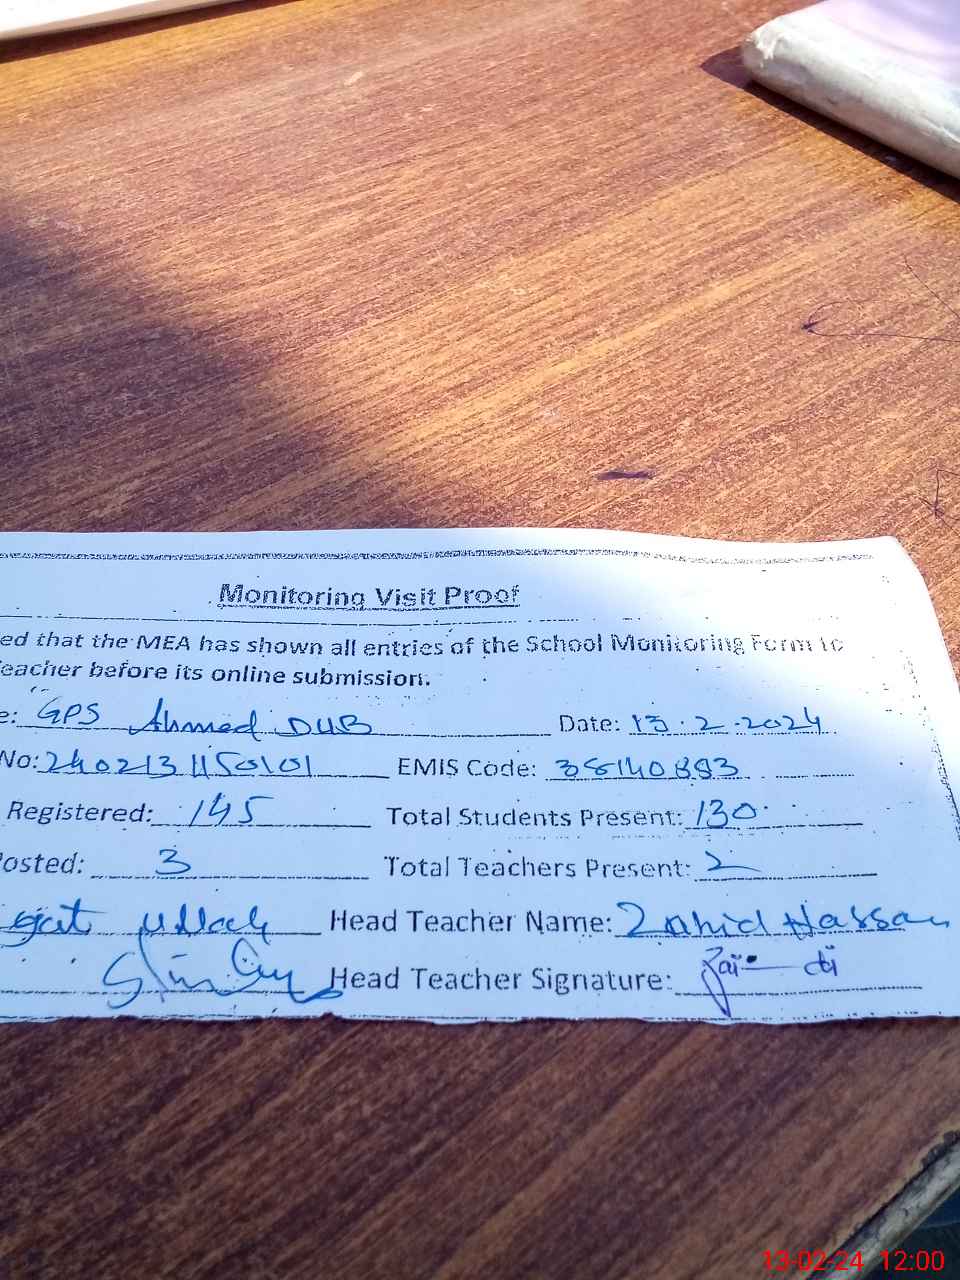 Monitoring Visit Proof
ed that the MEA has shown all entries of the School Monitoring Form to
eacher before its online submission.
e: GPS Ahmed DUB Date: 13.2.2024
No: 2402131150101 EMIS Code: 38140883
Registered: 145 Total Students Present: 130
osted: 3 Total Teachers Present: 2
ullah Head Teacher Name: Zahid Hassan
Head Teacher Signature:
13-02-24 12:00